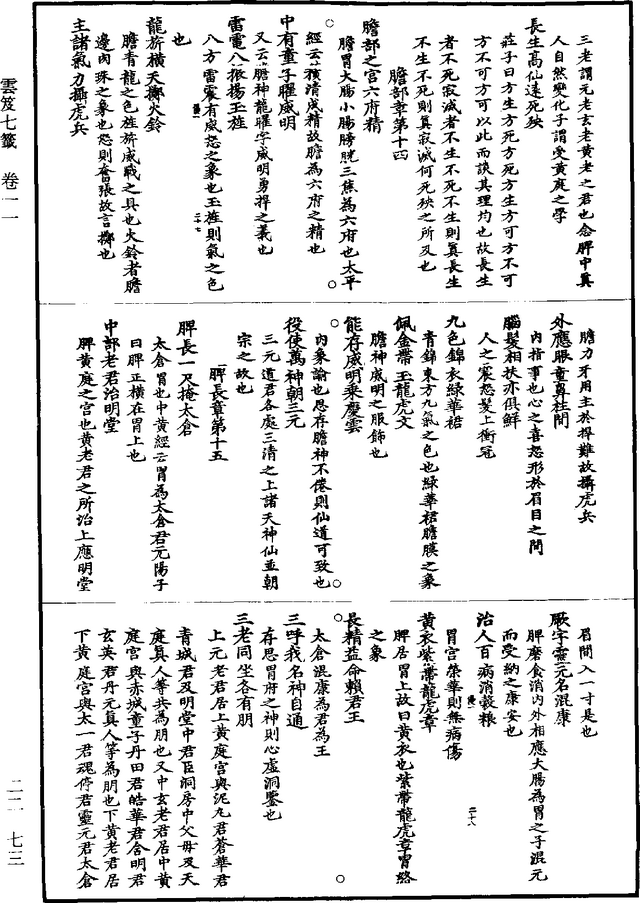 三老謂元老玄老黃老之君也念脾中真
人自然變化子謂受黃庭之學
長生高仙遠死殃
莊子曰方生方死方死方生方可方不可
方不可方可以此而談其理均也故長生
者不死寂滅者不生不死不生則真長生
不生不死則真寂滅何死殃之所及也
膽部章第十四
膽部之宮六府精
膽胃大腸小腸膀胱三焦為六府也太平
經云積清成精故膽為六府之精也
中有童子曜威明
又云膽神龍曜字威明勇捍之義也
雷電八振揚玉旌
八方雷震有威怒之象也玉旌則氣之色
也
龍旂橫天擲火鈴
膽青龍之色旌旂威戰之具也火鈴者膽
邊內珠之象也怒則奮張故言擲也
主諸氣力攝虎兵
膽力牙用主於捍難故攝虎兵
外應眼童鼻柱間
內指事也心之喜怒形於眉目之間
腦髮相扶亦俱鮮
人之震怒髮上衝冠
九色錦衣綠華裙
青錦東方九氣之色也綠華裙膽膜之象
佩金帶玉龍虎文
膽神威明之服飾也
能存威明乘慶雲
內象諭也思存膽神不倦則仙道可致也
役使萬神朝三元
三元道君各處三清之上諸天神仙並朝
宗之故也
脾長章第十五
脾長一尺掩太倉
太倉胃也中黃經云胃為太倉君元陽子
曰脾正橫在胃上也
中部老君治明堂
脾黃庭之宮也黃老君之所治上應明堂
眉間入一寸是也
厥字靈元名混康
脾磨食消內外相應大腸為胃之子混元
而受納之康安也
治人百病消穀糧
胃宮榮華則無病傷
黃衣紫帶龍虎章
脾居胃上故曰黃衣也紫帶龍虎章胃絡
之象
長精益命賴君王
太倉混康為君為王
三呼我名神自通
存思胃府之神則心虛洞鑒也
三老同坐各有朋
上元老君居上黃庭宮與泥丸君蒼華君
青城君及明堂中君臣洞房中父母及天
庭真人等共為朋也又中玄老君居中黃
庭宮與赤城童子丹田君皓華君含明君
玄英君丹元真人等為朋也下黃老君居
下黃庭宮與太一君魂停君靈元君太倉
雲笈七籤 卷一一
二二 七三